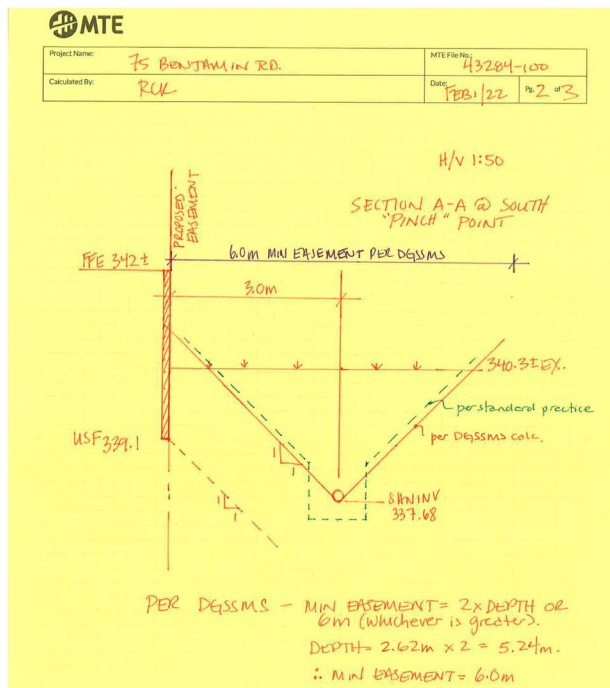 MTE
Project Name:
75 BENJAMIN RD.
MTE File No.:
43284-100
Calculated By:
RCK
Date:
FEB1/22
Pg. 2 of 3
H/V 1:50
SECTION A-A @ SOUTH
"PINCH" POINT
PROPOSED
EASEMENT
FFE 342±
6.0m MIN EASEMENT PER DGSSMS
3.0m
340.3± EX.
per standard practice
per DGSSMS calc.
USF 339.1
1
1
1
1
SAN INV
337.68
PER DGSSMS - MIN EASEMENT = 2 x DEPTH OR
6m (whichever is greater).
DEPTH = 2.62m x 2 = 5.24m.
∴ MIN EASEMENT = 6.0m